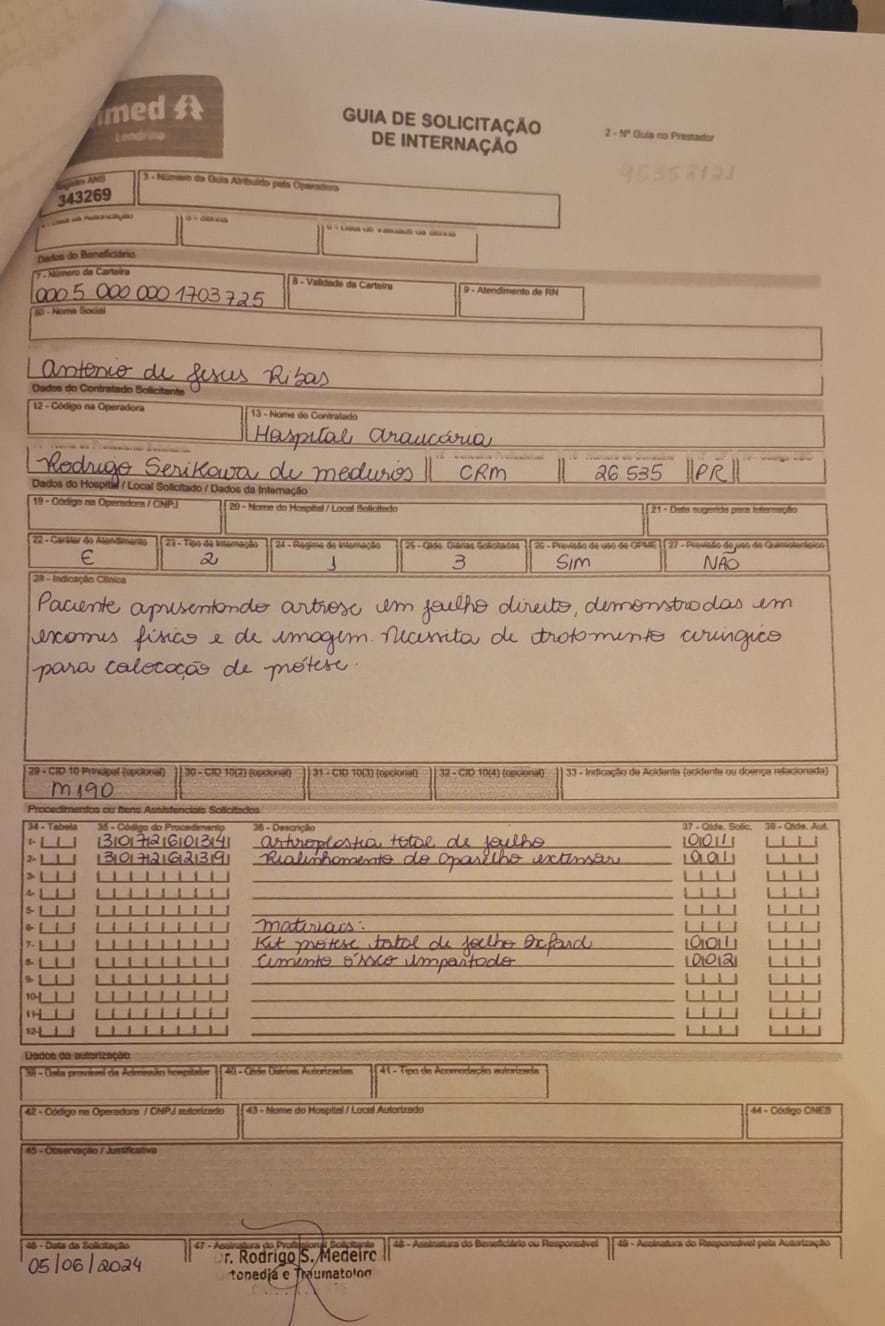 med
Londrina
GUIA DE SOLICITAÇÃO
DE INTERNAÇÃO
2 - Nº Guia no Prestador
Registro ANS
343269
3 - Número da Guia Atribuído pela Operadora
5 - Senha
Dados do Beneficiário
7 - Número da Carteira
0005 000 000 1703725
8 - Validade da Carteira
9 - Atendimento de RN
60 - Nome Social
Antonio de Jesus Ribas
Dados do Contratado Solicitante
12 - Código na Operadora
13 - Nome do Contratado
Hospital Araucária
Rodrigo Serikawa de Medeiros
CRM
26 535
PR
Dados do Hospital / Local Solicitado / Dados da Internação
19 - Código na Operadora / CNPJ
20 - Nome do Hospital / Local Solicitado
21 - Data sugerida para internação
22 - Caráter do Atendimento
E
23 - Tipo de Internação
2
24 - Regime de Internação
1
25 - Qtde. Diárias Solicitadas
3
26 - Previsão de uso de OPME
SIM
27 - Previsão de uso de Quimioterápico
NÃO
28 - Indicação Clínica
Paciente apresentando artrose em joelho direito, demonstradas em
exames físico e de imagem. Necessita de tratamento cirúrgico
para colocação de prótese.
29 - CID 10 Principal (opcional)
M190
30 - CID 10(2) (opcional)
31 - CID 10(3) (opcional)
32 - CID 10(4) (opcional)
33 - Indicação de Acidente (acidente ou doença relacionada)
Procedimentos ou Itens Assistenciais Solicitados
34 - Tabela 35 - Código do Procedimento 36 - Descrição 37 - Qtde. Solic. 38 - Qtde. Aut.
1- 30726034 Artroplastia total de joelho 001
2- 30726239 Realinhamento do aparelho extensor 001
3-
4-
5-
6- materiais:
7- Kit prótese total de joelho Oxford 001
8- Cimento ósseo importado 002
9-
10-
11-
12-
Dados da autorização
39 - Data provável da Admissão hospitalar
40 - Qtde Diárias Autorizadas
41 - Tipo da Acomodação autorizada
42 - Código na Operadora / CNPJ autorizado
43 - Nome do Hospital / Local Autorizado
44 - Código CNES
45 - Observação / Justificativa
46 - Data da Solicitação
05/06/2024
47 - Assinatura do Profissional Solicitante
r. Rodrigo S. Medeirc
rtopedia e Traumatolog
48 - Assinatura do Beneficiário ou Responsável
49 - Assinatura do Responsável pela Autorização